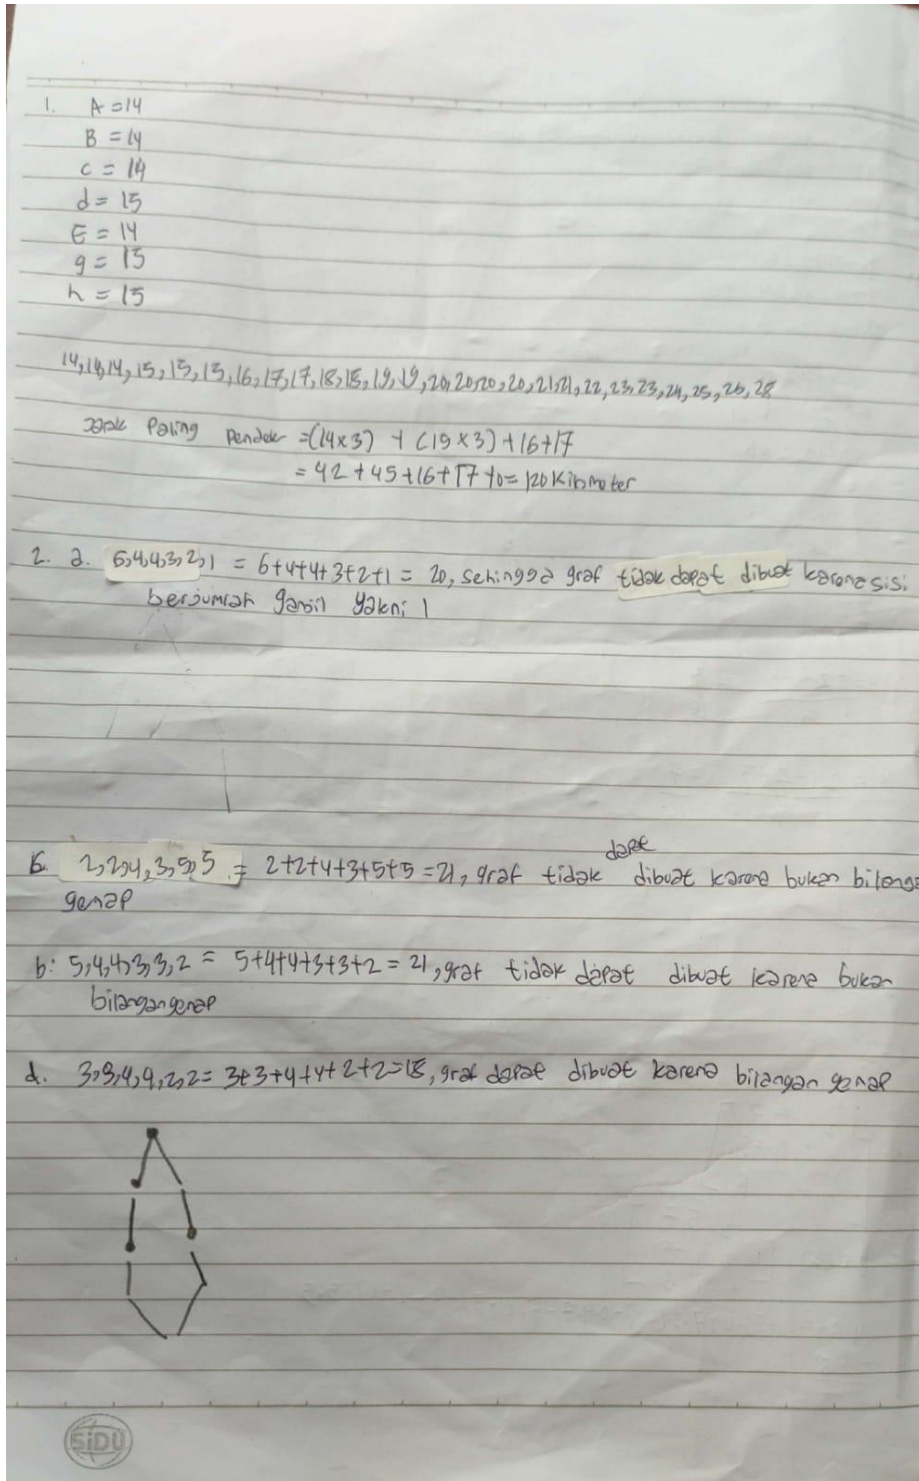 1. A = 14
B = 14
C = 14
d = 15
E = 14
g = 15
h = 15
14, 14, 14, 15, 15, 15, 16, 17, 17, 18, 18, 19, 19, 20, 20, 20, 20, 21, 21, 22, 23, 23, 24, 25, 26, 28
Jarak Paling Pendek = (14x3) + (15x3) + 16 + 17
= 42 + 45 + 16 + 17 + 0 = 120 Kilometer
2. a. 6,4,4,3,2,1 = 6+4+4+3+2+1 = 20, sehingga graf tidak dapat dibuat karena sisi
berjumlah ganjil yakni 1
dapat
2,2,4,3,5,5 = 2+2+4+3+5+5 = 21, graf tidak dibuat karena bukan bilanga
genap
b: 5,4,4,3,3,2 = 5+4+4+3+3+2 = 21, graf tidak dapat dibuat karena bukan
bilangan genap
d. 3,3,4,4,2,2 = 3+3+4+4+2+2 = 18, graf dapat dibuat karena bilangan genap
SiDU